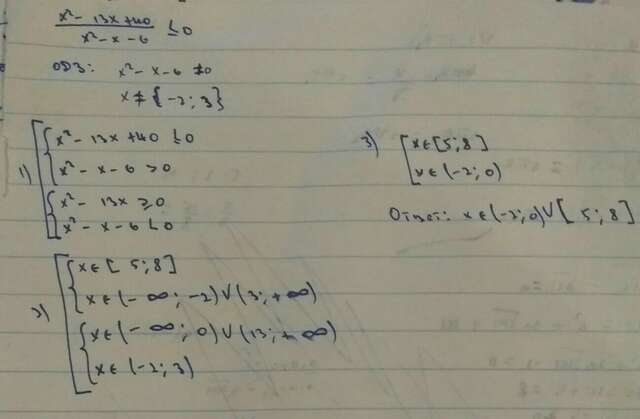 x² - 13x + 40 / x² - x - 6 ≤ 0
ОДЗ: x² - x - 6 ≠ 0
x ≠ {-2; 3}
1) [ { x² - 13x + 40 ≤ 0
x² - x - 6 > 0
{ x² - 13x ≥ 0
x² - x - 6 < 0
2) [ { x ∈ [5; 8]
x ∈ (-∞; -2) ∪ (3; +∞)
{ x ∈ (-∞; 0) ∪ (13; +∞)
x ∈ (-2; 3)
3) [ x ∈ [5; 8]
x ∈ (-2; 0)
Ответ: x ∈ (-2; 0) ∪ [5; 8]